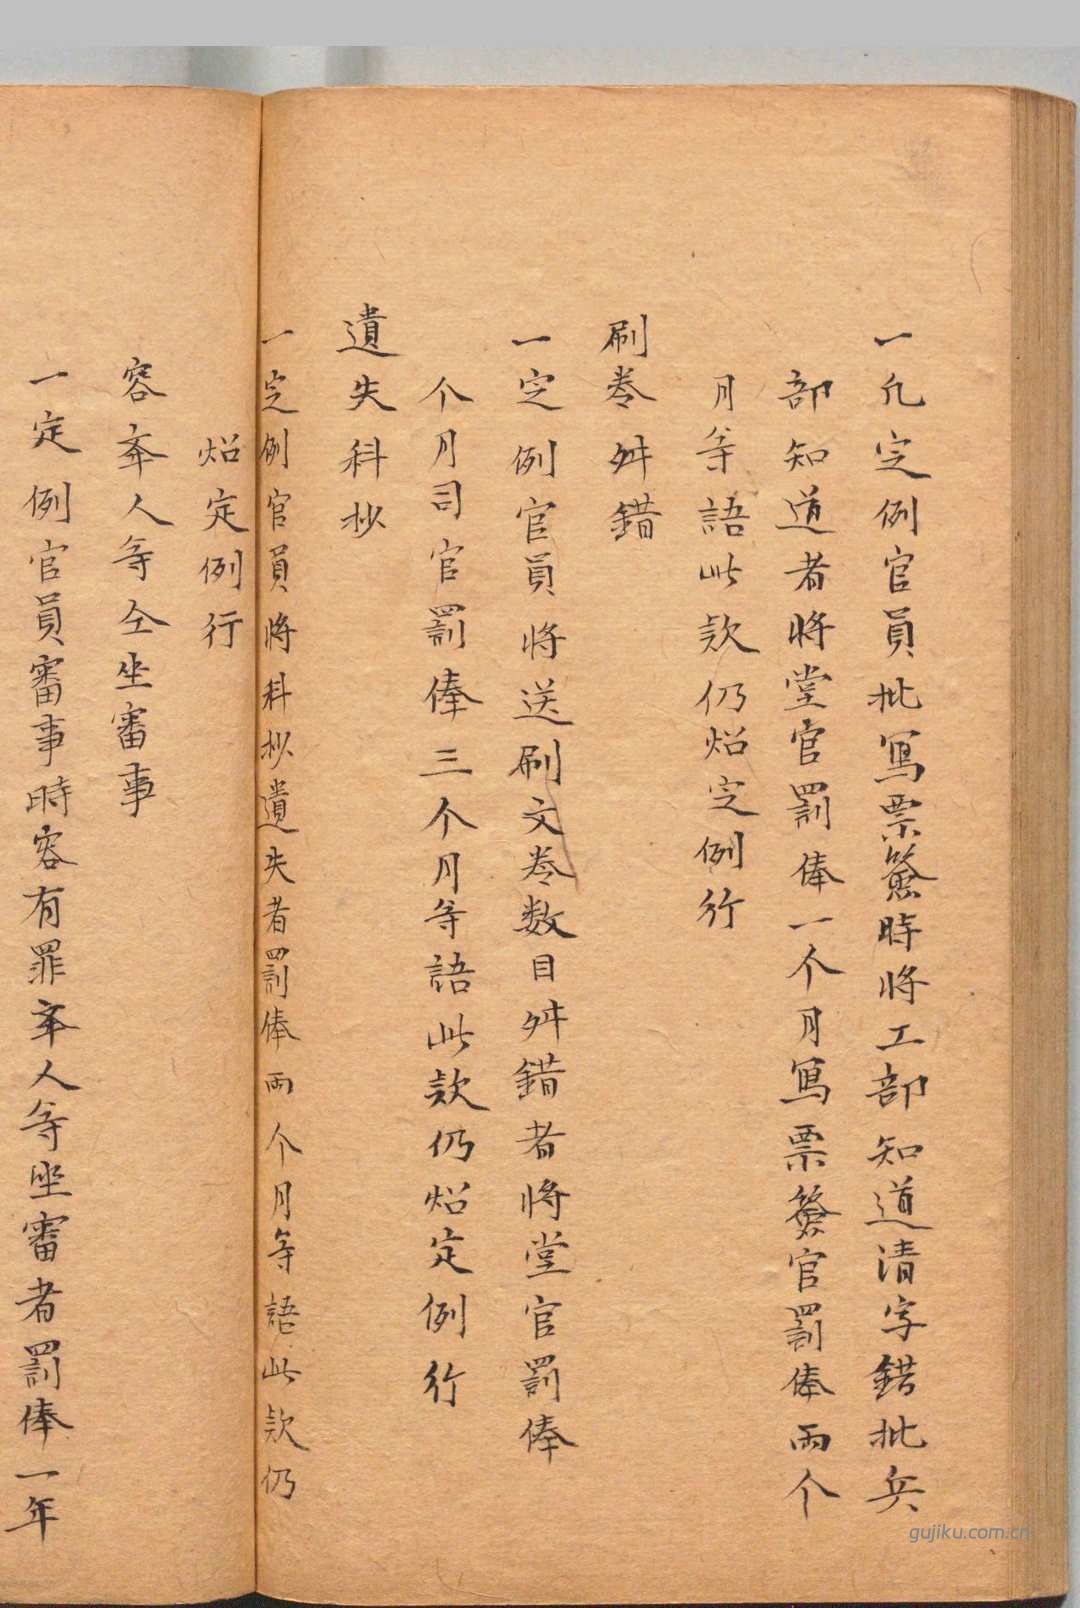 一凢定例官員批寫票簽時將工部知道清字錯批兵
部知道者將堂官罰俸一个月寫票簽官罰俸兩个
月等語此款仍炤定例行
刷卷舛錯
一定例官員將送刷文卷数目舛錯者將堂官罰俸
个月司官罰俸三个月等語此款仍炤定例行
遺失科抄
一定例官員將科抄遺失者罰俸兩个月等語此款仍
炤定例行
容辛人等仝坐審事
一定例官員審事時容有罪辛人等坐審者罰俸一年
gujiku.com.cn